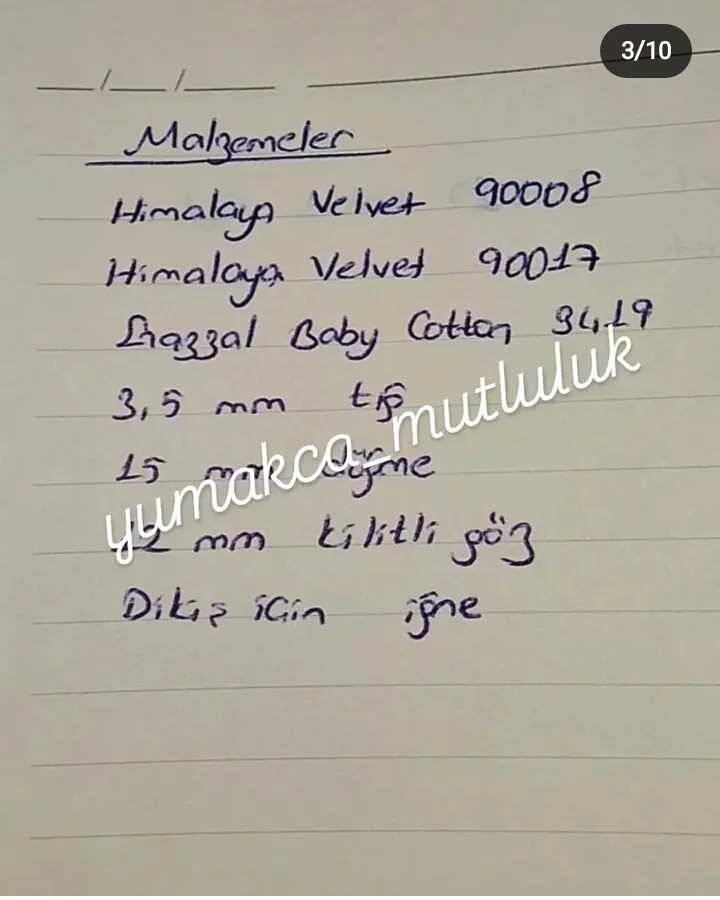 3/10
Malzemeler
Himalaya Velvet 90008
Himalaya Velvet 90017
Gazzal Baby Cotton 3419
3,5 mm tığ
15 mm düğme
yumakca_mutluluk
12 mm kilitli göz
Dikiş için iğne